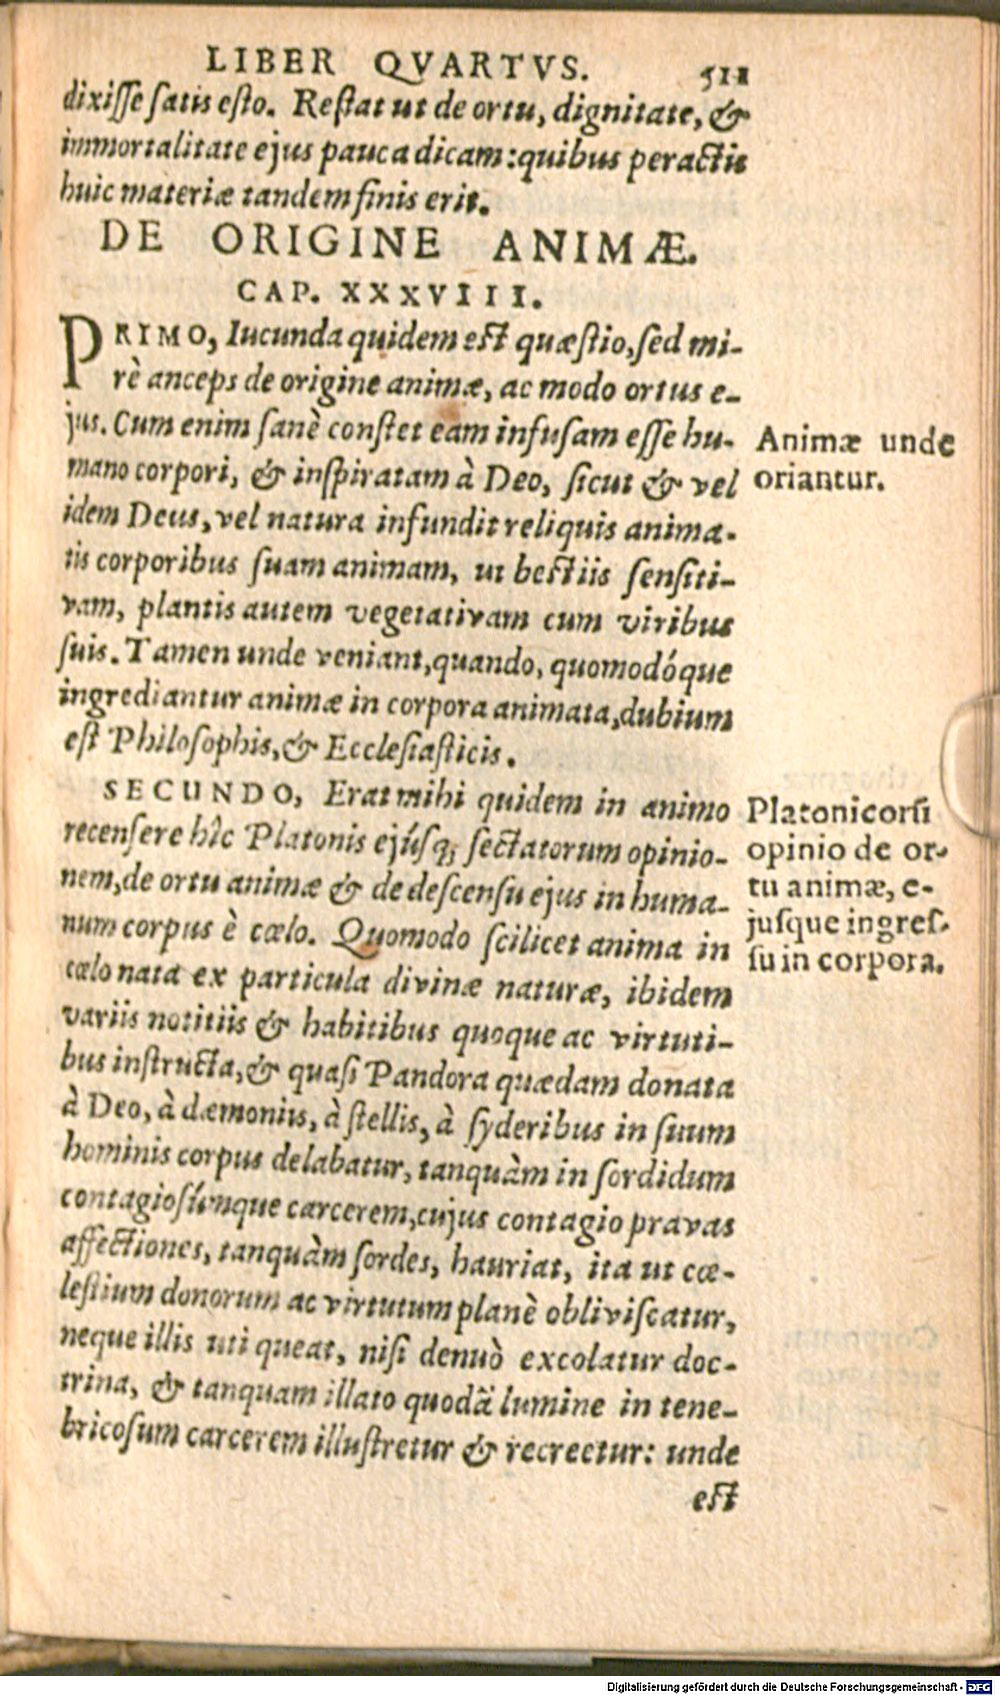 LIBER QVARTVS. 511
dixisse satis esto. Restat ut de ortu, dignitate, &
immortalitate ejus pauca dicam: quibus peractis
huic materiæ tandem finis erit.
DE ORIGINE ANIMÆ.
CAP. XXXVIII.
PRIMO, Iucunda quidem est quæstio, sed mi-
rè anceps de origine animæ, ac modo ortus e-
jus. Cum enim sanè constet eam infusam esse hu-
mano corpori, & inspiratam à Deo, sicut & vel
idem Deus, vel natura infundit reliquis anima-
tis corporibus suam animam, ut bestiis sensiti-
vam, plantis autem vegetativam cum viribus
suis. Tamen unde veniant, quando, quomodóque
ingrediantur animæ in corpora animata, dubium
est Philosophis, & Ecclesiasticis.
Animæ unde
oriantur.
SECUNDO, Erat mihi quidem in animo
recensere hîc Platonis ejúsq; sectatorum opinio-
nem, de ortu animæ & de descensu ejus in huma-
num corpus è cœlo. Quomodo scilicet anima in
cœlo nata ex particula divinæ naturæ, ibidem
variis notitiis & habitibus quoque ac virtuti-
bus instructa, & quasi Pandora quædam donata
à Deo, à dæmoniis, à stellis, à syderibus in suum
hominis corpus delabatur, tanquàm in sordidum
contagiosúmque carcerem, cujus contagio pravas
affectiones, tanquàm sordes, hauriat, ita ut cœ-
lestium donorum ac virtutum planè obliviscatur,
neque illis uti queat, nisi denuò excolatur doc-
trina, & tanquam illato quodã lumine in tene-
bricosum carcerem illustretur & recreetur: unde
est
Platonicorũ
opinio de or-
tu animæ, e-
jusque ingres-
su in corpora.
Digitalisierung gefördert durch die Deutsche Forschungsgemeinschaft - DFG